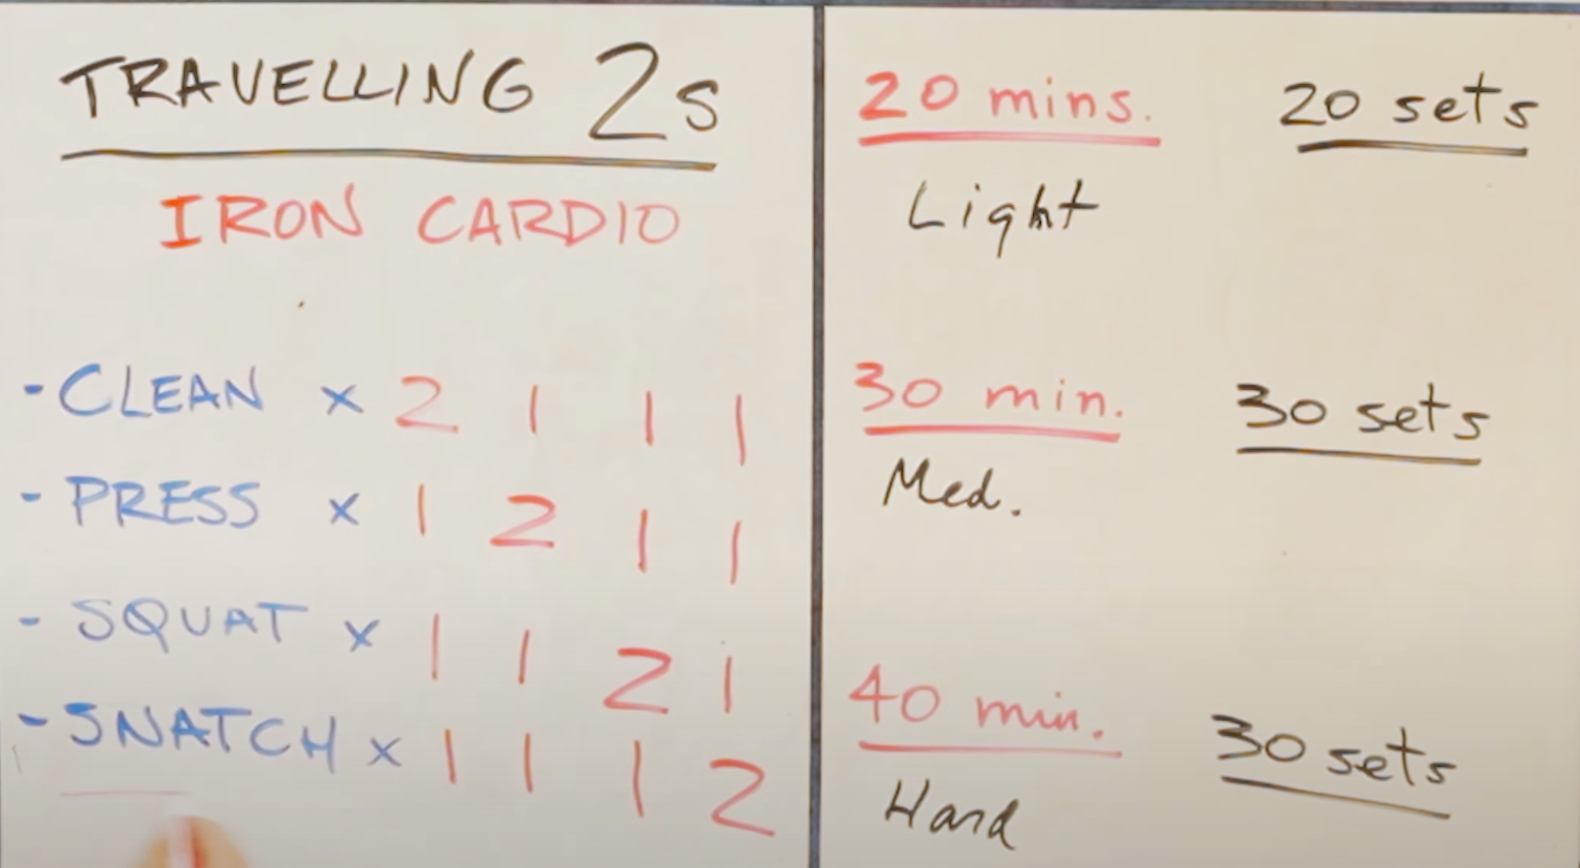 TRAVELLING 2s
IRON CARDIO
- CLEAN x 2 1 1 1
- PRESS x 1 2 1 1
- SQUAT x 1 1 2 1
- SNATCH x 1 1 1 2
20 mins. 20 sets
Light
30 min. 30 sets
Med.
40 min. 30 sets
Hard